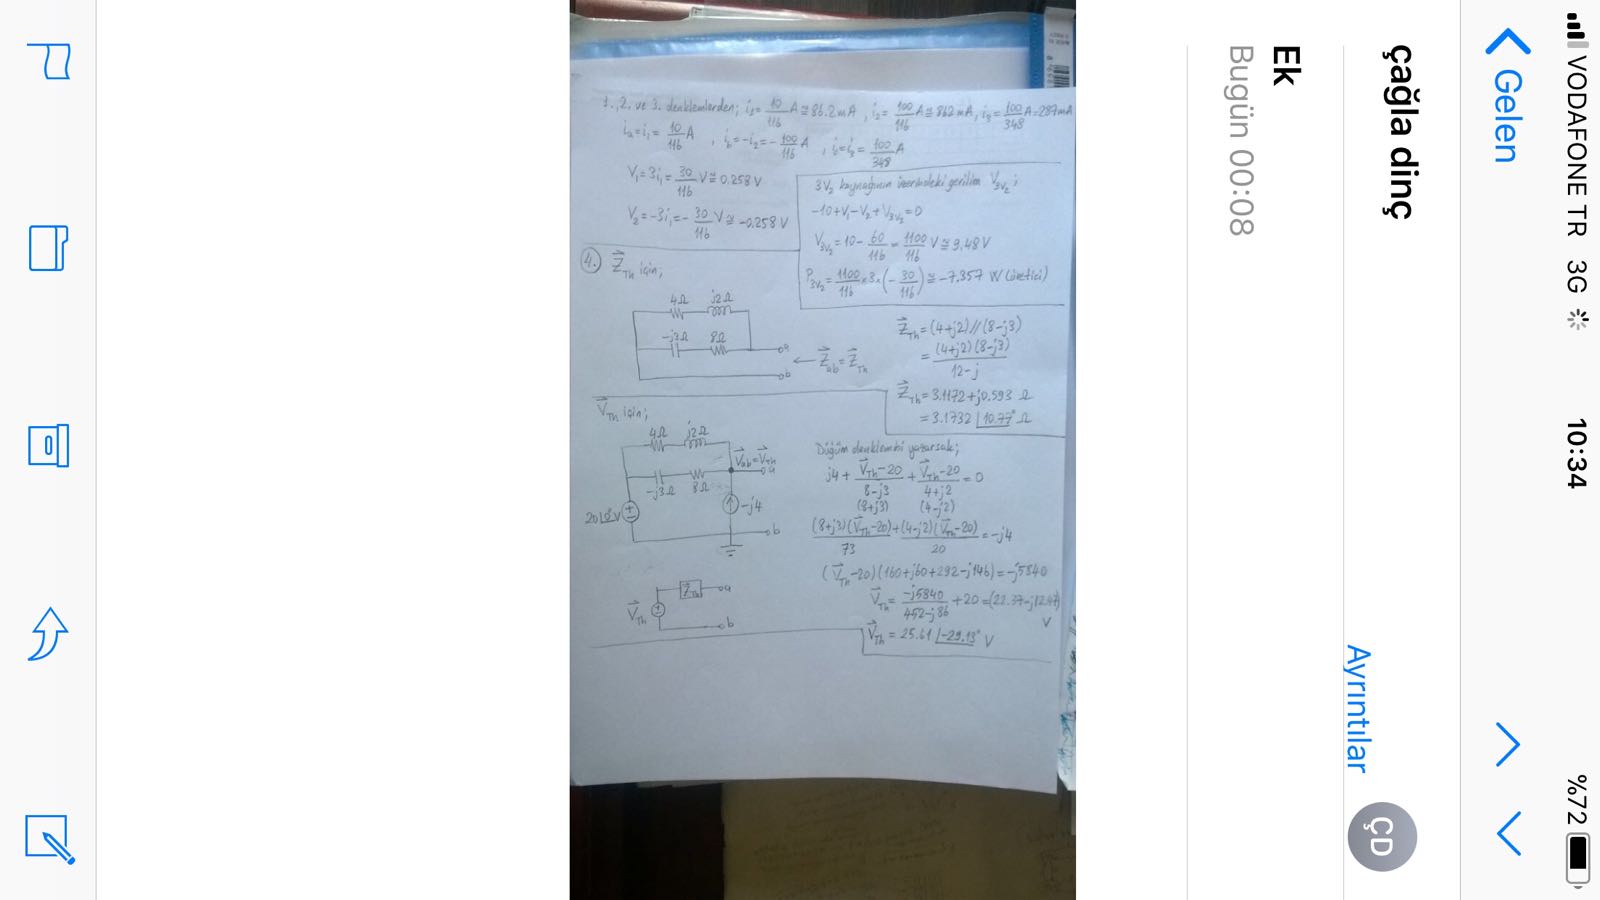 VODAFONE TR 3G 10:34 %72
Gelen
çağla dinç Ayrıntılar ÇD
Ek
Bugün 00:08
1., 2. ve 3. denklemlerden; i₁= 10/116 A ≅ 86.2 mA, i₂= 100/116 A ≅ 862 mA, i₃= 100/348 A = 287 mA
iₐ=i₁= 10/116 A, i_b=-i₂=- 100/116 A, i=i₃= 100/348 A
V₁=3i₁= 30/116 V ≅ 0.258 V
V₂=-3i₁=- 30/116 V ≅ -0.258 V
3V₂ kaynağının üzerindeki gerilim V_3V₂;
-10+V₁-V₂+V_3V₂=0
V_3V₂=10- 60/116 = 1100/116 V ≅ 9.48 V
P_3V₂= 1100/116 ×3×(- 30/116) ≅ -7.357 W (üretici)
4. Z_Th için;
4Ω j2Ω
-j3Ω 8Ω
a
b
Z_ab=Z_Th
Z_Th=(4+j2)//(8-j3)
= (4+j2)(8-j3)/12-j
Z_Th=3.1172+j0.593 Ω
=3.1732 ∠10.77° Ω
V_Th için;
4Ω j2Ω
V_ab=V_Th
a
-j3Ω 8Ω
20∠0° V
-j4
b
V_Th Z_Th a
b
Düğüm denklemini yazarsak;
j4 + V_Th-20/8-j3 + V_Th-20/4+j2 = 0
(8+j3) (4-j2)
(8+j3)(V_Th-20)/73 + (4-j2)(V_Th-20)/20 = -j4
(V_Th-20)(160+j60+292-j146)=-j5840
V_Th= -j5840/452-j86 +20=(22.37-j12.47) V
V_Th = 25.61 ∠-29.13° V